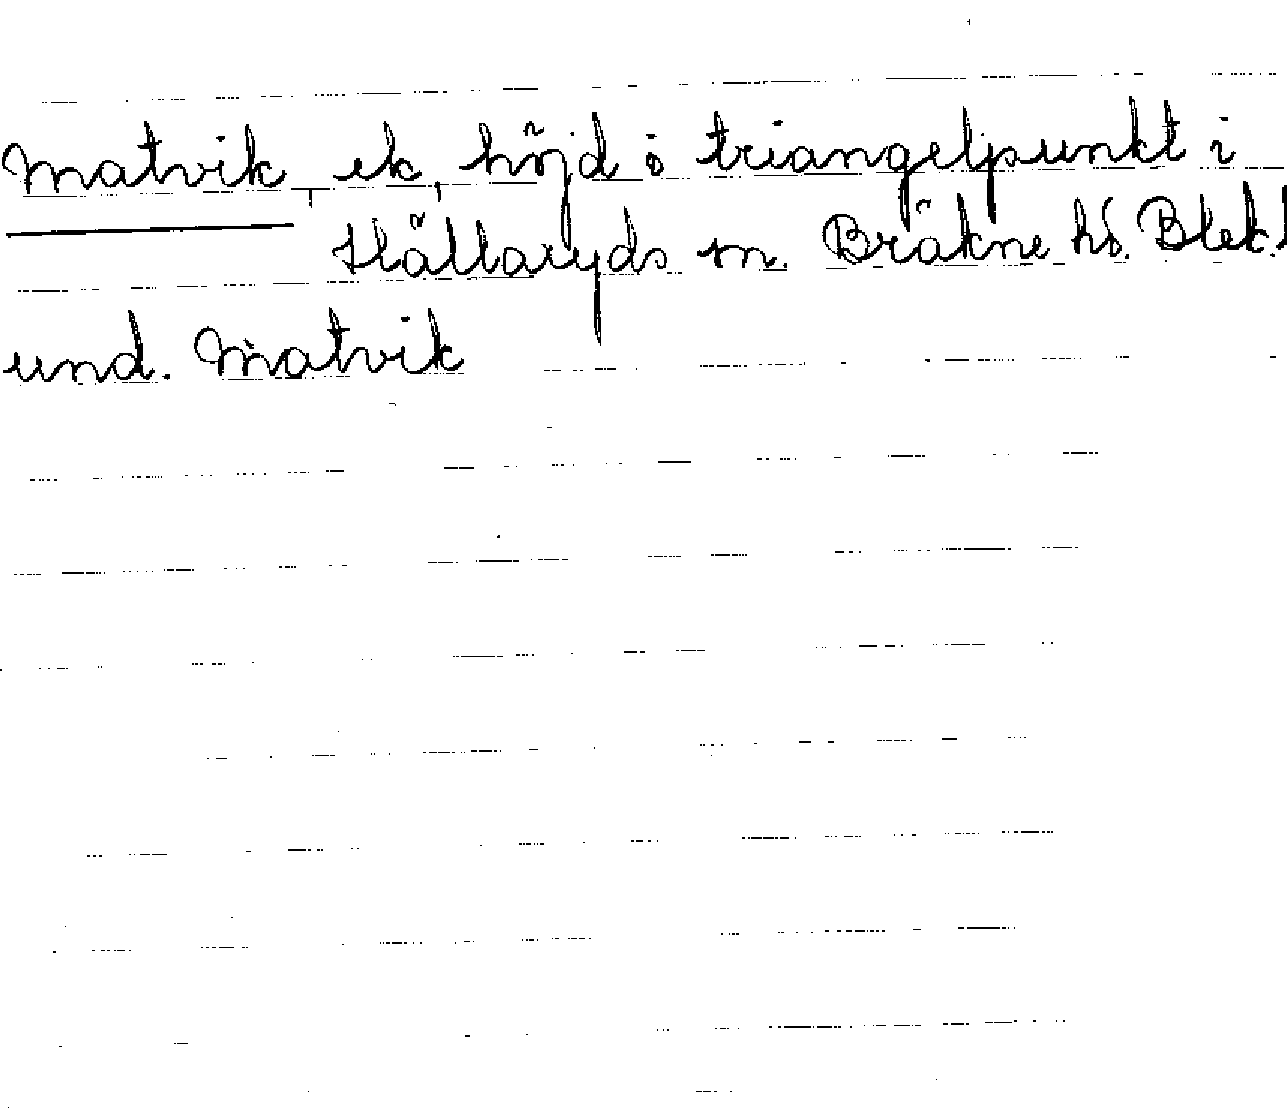 Matvik, ek, höjd o triangelpunkt i
Hällaryds sn. Bräkne hd. Blek.
und. Matvik